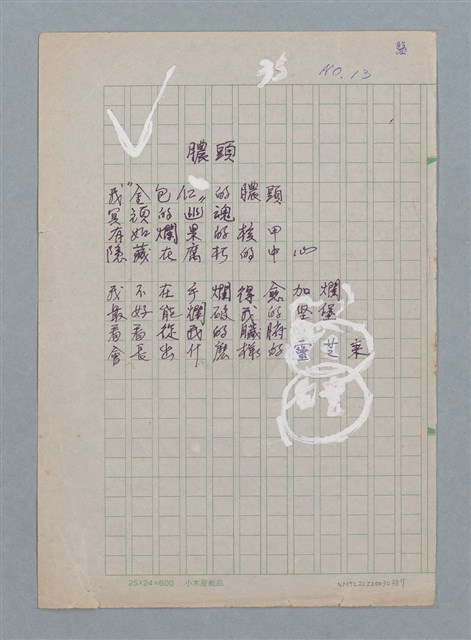 NO.13
膿頭
我"金包仁"的膿頭
冥頑的巡魂
有如爛果的核甲
隱藏在腐朽的中心
我不在乎爛得愈加爛
最好能爛破我的堅堡
看看從我的臟腑
會長出什麼樣的靈芝來
25×24=600 小木屋紙品